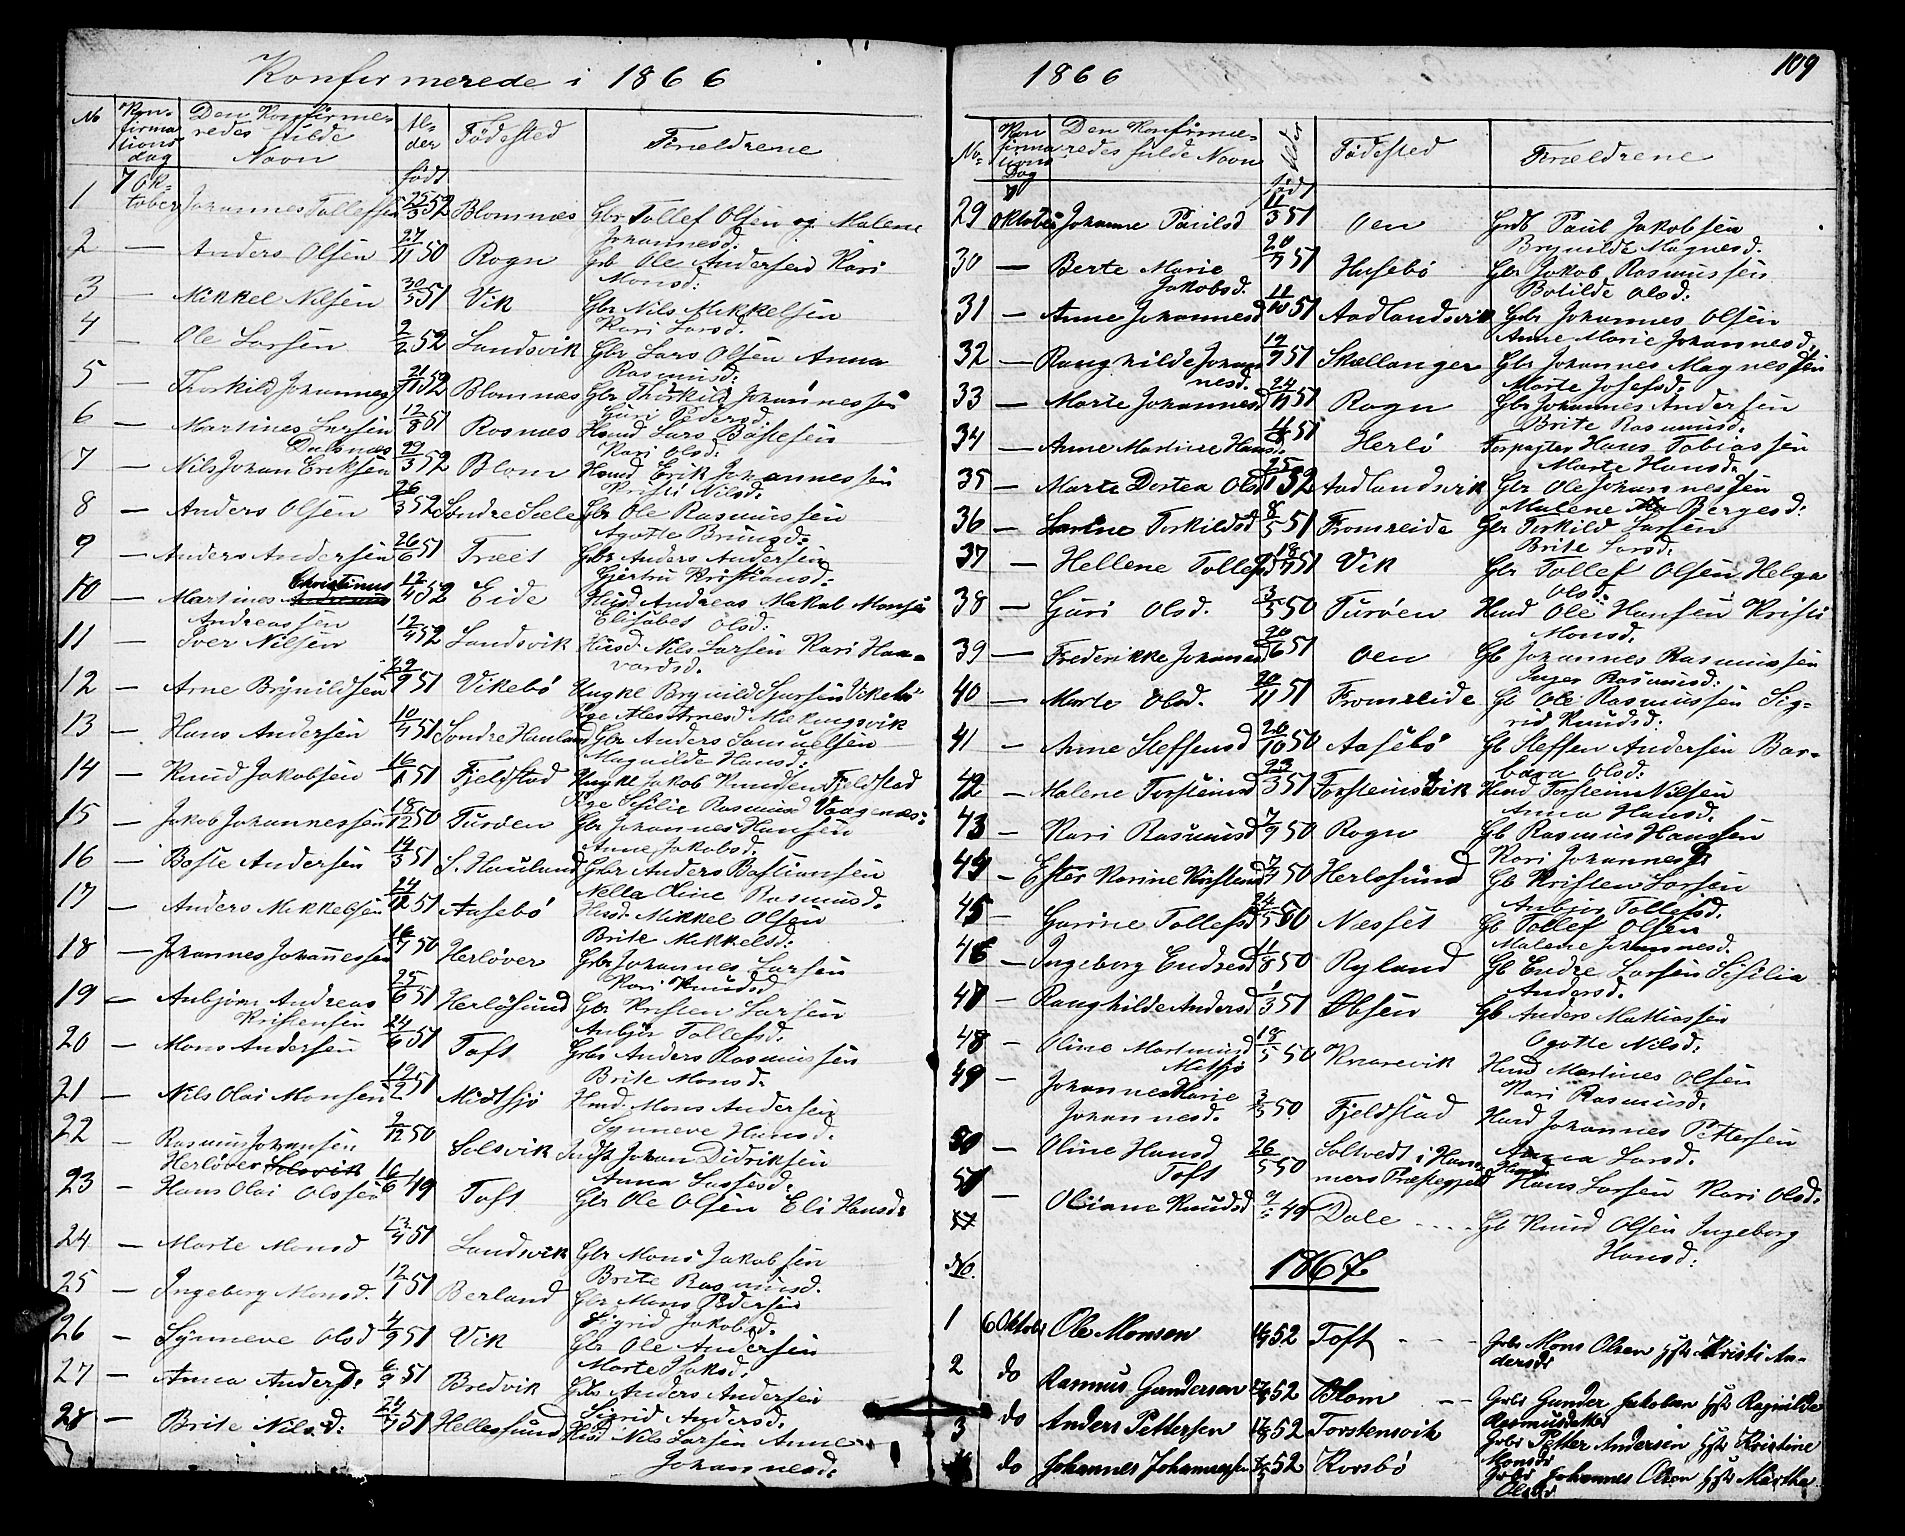 Konfirmerede i 1866
No Kon-firma tions dag Den Konfirme-redes fulde Navn Al-der født Fødested Forældrene
1 7 Ok-tober Johannes Tollefsen 25/3 52 Blomnæs Gbr Tollef Olsen og Malene Johannesd:
2 — Anders Olsen 27/11 50 Rogn Grb Ole Andersen Kari Monsd:
3 — Mikkel Nilsen 30/5 51 Vik Gbr Nils Mikkelsen Kari Larsd.
4 — Ole Larsen 2/2 52 Landsvik Gbr Lars Olsen Anna Rasmusd:
5 — Thorkild Johannes 21/11 52 Blomnæs Gbr Thorkild Johannessen Guri Pedersd.
6 — Martines Larsen 12/8 51 Rosnæs Hsmd Lars Bastesen Kari Olsd.
7 — Nils Johan Eriksen 29/3 52 Blom Hsmd Erik Johannessen Kristi Nilsd.
8 — Anders Olsen 26/3 52 Søndre Sæle Gbr Ole Rasmussen Agotte Brunsd.
9 — Anders Andersen 26/6 51 Træet Gbr Anders Andersen Gjertru Kristiansd.
10 — Martines Christinus Andreassen 12/4 52 Eide Husd Andreas Makab Monsen Elisabet Olsd.
11 — Iver Nilsen 12/4 52 Landsvik Husd Nils Larsen Kari Haa-vardsd.
12 — Arne Brynildsen 29/9 51 Vikebø Ungkl Brynild Larsen Vikebø Pige Ales Arnesd Mækingsvik
13 — Hans Andersen 10/4 51 Søndre Hauland Gbr Anders Samuelsen Magnilde Hansd:
14 — Knud Jakobsen 16/1 51 Fjeldstad Ungkl Jakob Knudsen Fjeldstad Pige Sesilie Rasmusd Vaagenæs:
15 — Jakob Johannessen 18/12 50 Turøen Gbr Johannes Hansen Anne Jakobsd.
16 — Baste Andersen 14/3 51 S. Hauland Gbr Anders Bastiansen Nella Oline Rasmusd.
17 — Anders Mikkelsen 24/12 51 Aasebø Husd. Mikkel Olsen Brite Mikkelsd:
18 — Johannes Johannessen 16/7 50 Herløver Grb Johannes Larsen Kari Knudsd
19 — Anbjørn Andreas Kristensen 25/6 51 Herløsund Gbr Kristen Larsen Anbjør Tollefsd.
20 — Mons Andersen 24/6 51 Toft Grbr Anders Rasmussen Brite Monsd.
21 — Nils Olai Monsen 19/2 51 Midtsjø Husd. Mons Andersen Synneve Hansd.
22 — Rasmus Johansen Herløver 2/12 50 Solsvik Indst Johan Didriksen Anna Lassesd:
23 — Hans Olai Olssen 16/6 49 Toft Gbr Ole Olsen Eli Hansd:
24 — Marte Monsd 13/4 51 Landsvik Gbr Mons Jakobsen Brite Rasmusd.
25 — Ingeborg Monsd. 12/1 51 Berland Gbr Mons Pedersen Sigrid Jakobsd.
26 — Synneve Olsd 4/9 51 Vik Gbr Ole Andersen Marte Isaksd.
27 — Anna Andersd: 6/9 51 Bredvik Gbr Anders Andersen Sigrid Andersd.
28 — Brite Nilsd: 24/7 51 Hellesund Husd Nils Larsen Anne Johannesd.
1866
109
No Kon firma tions Dag Den Konfirme-redes fulde Navn Alder født Fødested Forældrene
29 Oktober Johanne Paulsd 11/3 51 Oen Grdb Paul Jakobsen Brynilde Magnesd.
30 — Berte Marie Jakobsd. 20/7 51 Husebø Gbr Jakob Rasmussen Botilde Olsd:
31 — Anne Johannesd 11/10 51 Aadlandsvik Gbr Johannes Olsen Anne Marie Johannesd.
32 — Rangnilde Johan nesd. 12/9 51 Skellanger Gbr Johannes Magnessen Marte Josefsd.
33 — Marte Johannesd 24/11 51 Rogn Gbr Johannes Andersen Brite Rasmusd.
34 — Anne Martine Hansd. 4/8 51 Herlø Forpagter Hans Tobiassen Marte Hansd.
35 — Marte Dortea Olsd 25/1 52 Aadlandsvik Gbr Ole Johannessen Malene Bergesd:
36 — Larine Torkildsd 8/5 51 Fromreide Gbr Torkild Larsen Brite Larsd.
37 — Hellene Tollefsd 18/7 51 Vik Gbr Tollef Olsen Helga Olsd.
38 — Guri Olsd. 3/5 50 Turøen Husd Ole Hansen Kristi Monsd.
39 — Frederikke Johansd 20/6 51 Oen Gb Johannes Rasmussen Inger Rasmusd:
40 — Marte Olsd. 20/11 51 Fromreide Gb Ole Rasmussen Sig-rid Knudsd:
41 — Anne Steffensd 26/10 50 Aasebø Gb Steffen Andersen Bar-bara Olsd:
42 — Malene Torsteinsd 23/3 51 Torsteinsvik Husd Torstein Nilsen Anna Hansd.
43 — Kari Rasmusd 7/9 50 Rogn Gb Rasmus Hanssen Kari Johannesd
44 — Ester Karine Kristensd 7/7 50 Herlosund Gb Kristen Larsen Anbjør Tollefsd.
45 — Gurine Tollefsd 24/5 50 Næsset Gb Tollef Olsen Malene Johannesd.
46 — Ingeborg Endresd 11/8 50 Ryland Gb Endre Larsen Sisilia Andersd.
47 — Rangnilde Andersd 1/3 51 Øbsen Gb Anders Mattiassen Ogatte Nilsd.
48 — Oline Martinusd Mitsjø 18/5 50 Knarrevik Husd Martines Olsen Kari Rasmusd.
49 — Johanne Marie Johannesd. 3/5 50 Fjeldstad Husd Johannes Pettersen Anna Larsd.
50 — Oline Hansd Toft 26/5 50 Soltvedt i Ham mers Præstegjeld Husd Hans Larsen Kari Olsd.
51 — Oliane Knudsd 49 Dale Gb Knud Olsen Ingeborg Hansd.
No. 1867
1 6 Oktober Ole Monsen 52 Toft Grbr Mons Olsen Hstr Kristi An-dersdr
2 do Rasmus Gundersen 52 Blom Grbr Gunder Jakobsen Hstr Ragnilde Rasmusdatter
3 do Anders Pettersen 52 Torstensvik Grbr Petter Andersen Hstr Kristine Monsdr
do Johannes Johannessen 52 Korsbø Grbr Johannes Olsen Hstr Martha Olsdr